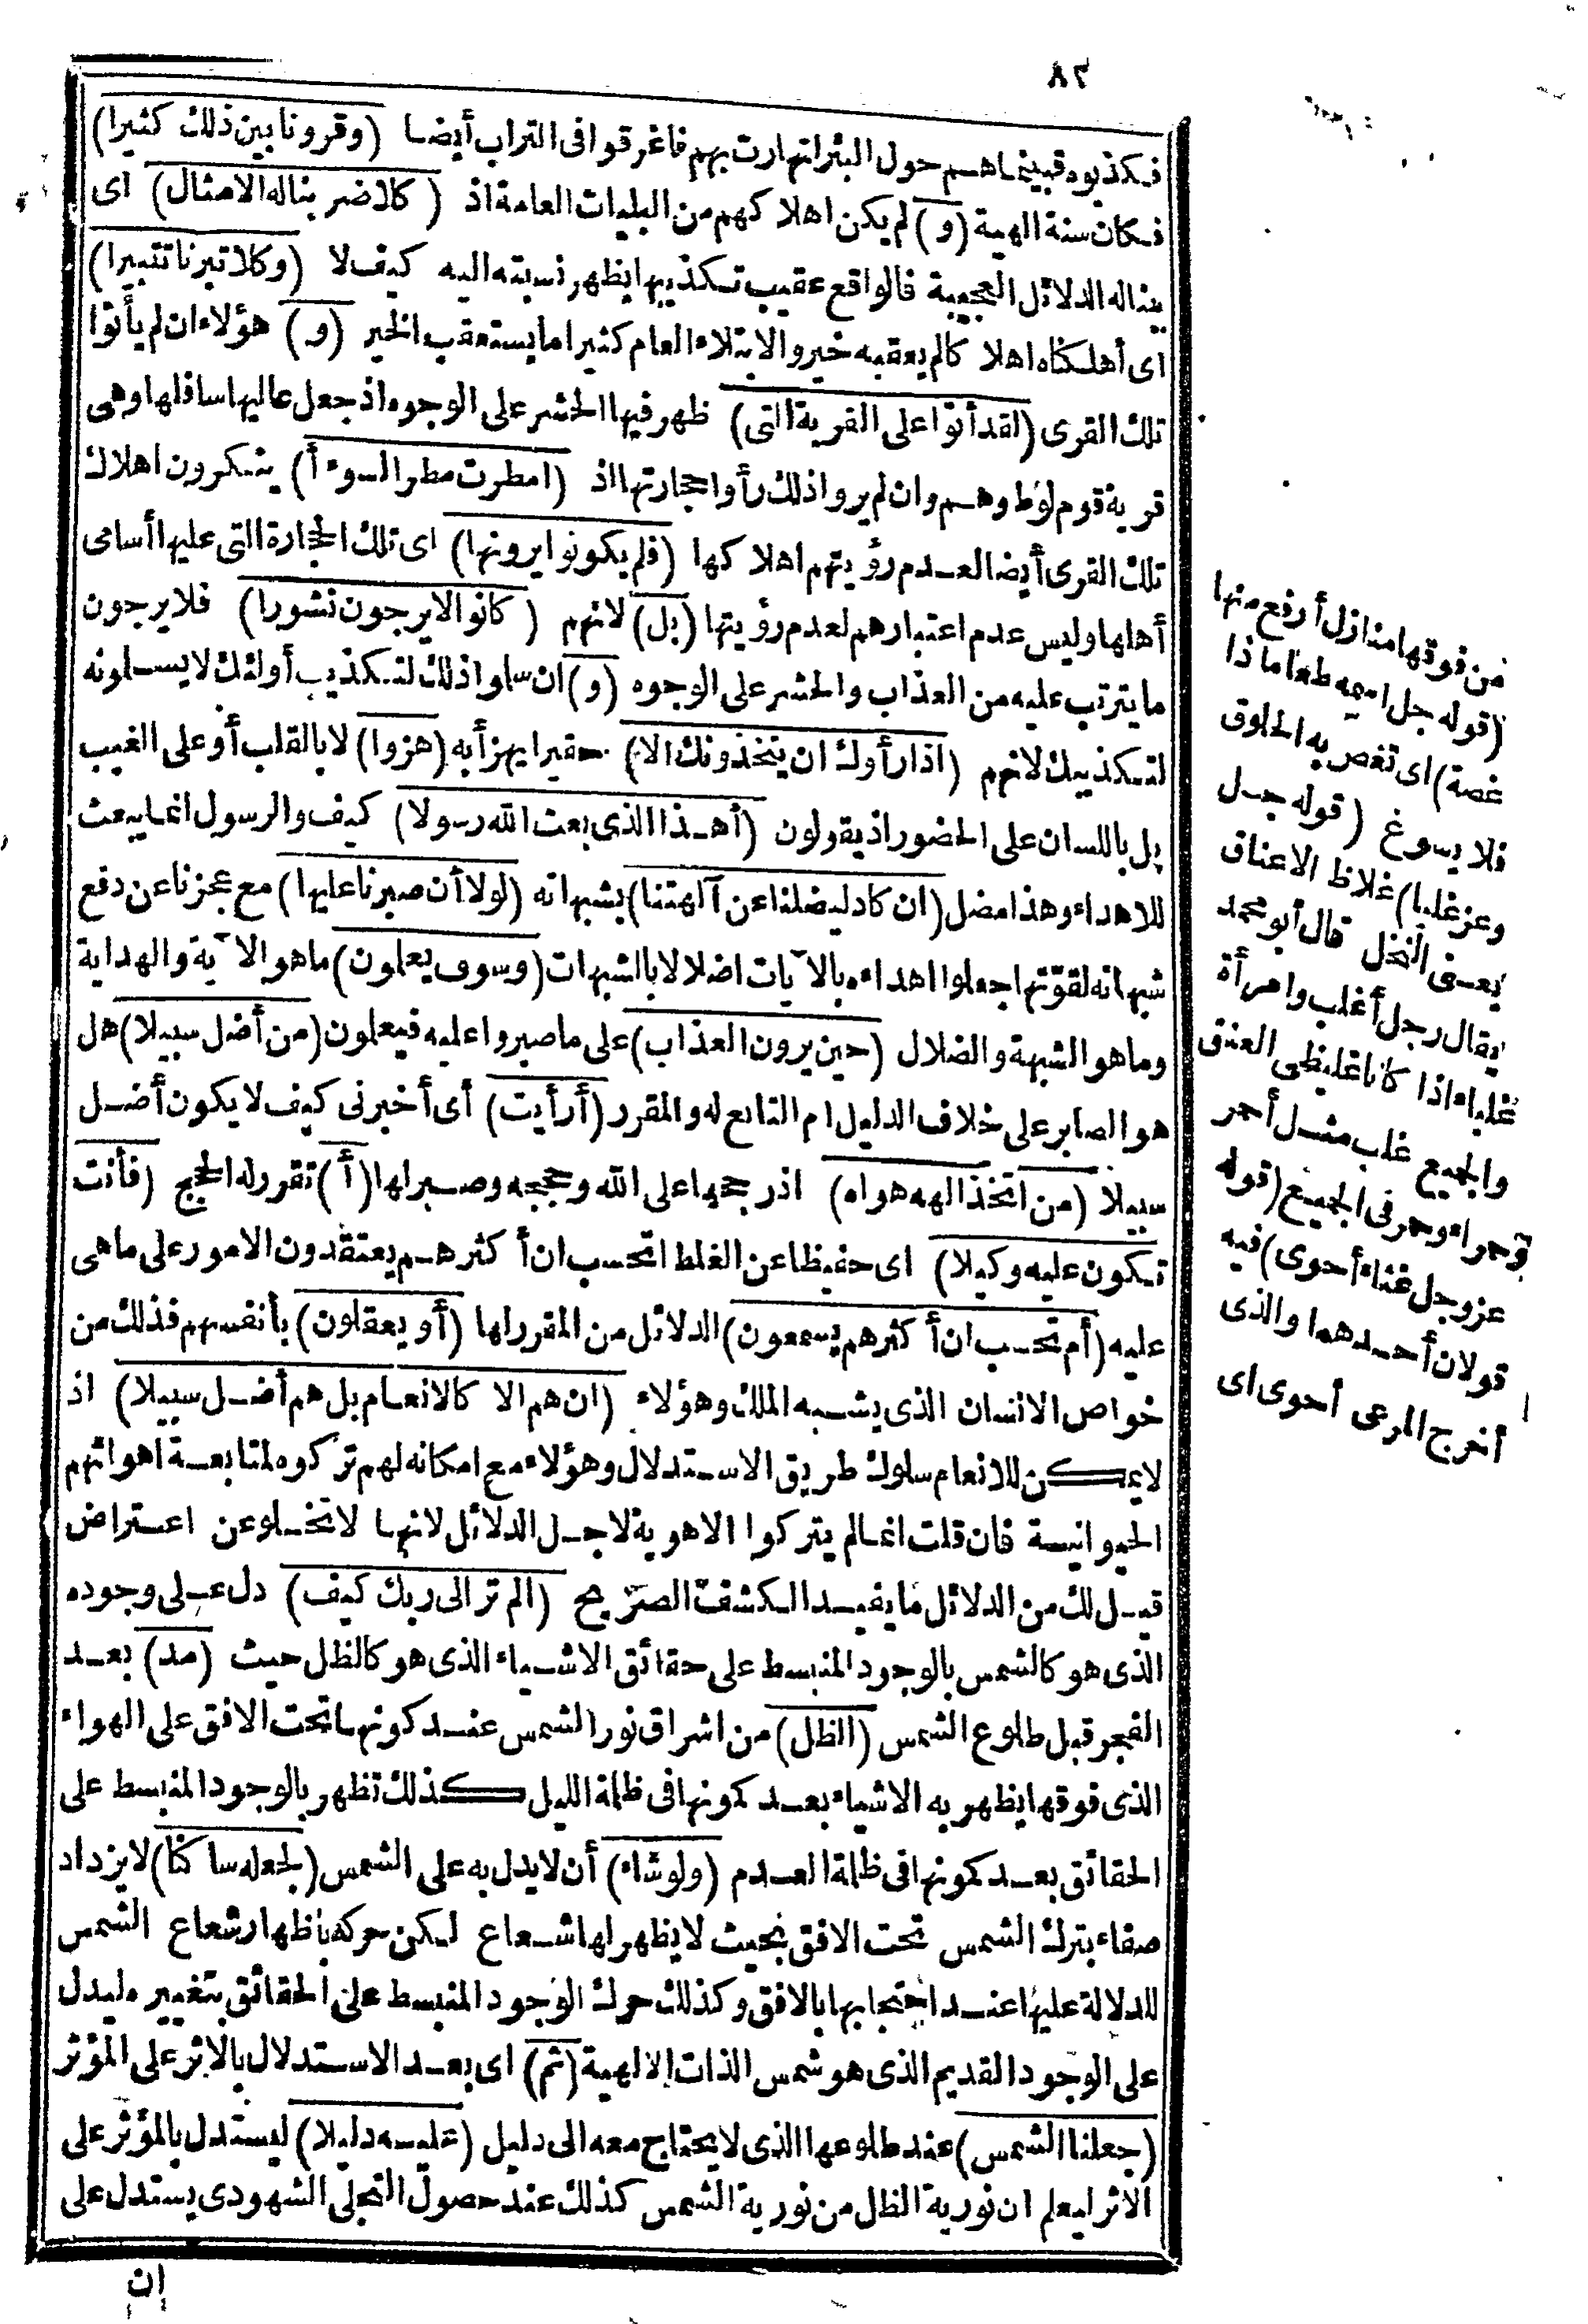 ٨٢
فكذبوه فبينما هم حول البئر انهارت بهم فاغرقوا فى التراب أيضا (وقرونا بين ذلك كثيرا)
فكان سنة الهية (و) لم يكن اهلاكهم من البليات العامة اذ (كلا ضربنا له الامثال) اى
بينا له الدلائل العجيبة فالواقع عقيب تكذيبها يظهر نسبته اليه كيف لا (وكلا تبرنا تتبيرا)
اى أهلكناه اهلا كا لم يعقبه خير والابتلاء العام كثيرا ما يستعقب الخير (و) هؤلاء ان لم يأتوا
تلك القرى (لقد أتوا على القرية التى) ظهر فيها الحشر على الوجوه اذ جعل عاليها سافلها وهى
قرية قوم لوط وهم وان لم يروا ذلك رأوا حجارتها اذ (امطرت مطر السوء أ) ينكرون اهلاك
تلك القرى أيضا لعدم رؤيتهم اهلاكها (فلم يكونوا يرونها) اى تلك الحجارة التى عليها أسامى
أهلها وليس عدم اعتبارهم لعدم رؤيتها (بل) لانهم (كانوا لا يرجون نشورا) فلا يرجون
ما يترتب عليه من العذاب والحشر على الوجوه (و) ان سلوا ذلك لتكذيب أولئك لا يسلونه
لتكذيبك لانهم (اذا رأوك ان يتخذونك الا) حقيرا يهزأ به (هزوا) لا بالقلب أو على الغيب
بل باللسان على الحضور اذ يقولون (أهذا الذى بعث الله رسولا) كيف والرسول انما يبعث
للاهداء وهذا مضل (ان كاد ليضلنا عن آلهتنا) بشبهاته (لولا أن صبرنا عليها) مع عجزنا عن دفع
شبهاته لقوّتها جعلوا اهداءه بالآيات اضلالا بالشبهات (وسوف يعلمون) ما هو الآية والهداية
وما هو الشبهة والضلال (حين يرون العذاب) على ما صبروا عليه فيعلمون (من أضل سبيلا) هل
هو الصابر على خلاف الدليل ام التابع له والمقرر (أرأيت) أى أخبرنى كيف لا يكون أضل
سبيلا (من اتخذ الهه هواه) اذ رجحها على الله وحججه وصبر لها (أ) تقرر له الحجج (فأنت
تكون عليه وكيلا) اى حفيظا عن الغلط اتحسب ان أكثرهم يعتقدون الامور على ما هى
عليه (أم تحسب ان أكثرهم يسمعون) الدلائل من المقرر لها (أو يعقلون) بأنفسهم فذلك من
خواص الانسان الذى يشبه الملك وهؤلاء (ان هم الا كالانعام بل هم أضل سبيلا) اذ
لا يمكن للانعام سلوك طريق الاستدلال وهؤلاء مع امكانه لهم تركوه لمتابعة اهوائهم
الحيوانية فان قلت انما لم يتركوا الاهوية لاجل الدلائل لانها لا تخلو عن اعتراض
قيل لك من الدلائل ما يفيد الكشف الصريح (الم تر الى ربك كيف) دل على وجوده
الذى هو كالشمس بالوجود المنبسط على حقائق الاشياء الذى هو كالظل حيث (مد) بعد
الفجر قبل طلوع الشمس (الظل) من اشراق نور الشمس عند كونها تحت الافق على الهواء
الذى فوقها يظهر به الاشياء بعد كمونها فى ظلمة الليل كذلك تظهر بالوجود المنبسط على
الحقائق بعد كمونها فى ظلمة العدم (ولو شاء) أن لا يدل به على الشمس (لجعله ساكنا) لا يزداد
صفاء بترك الشمس تحت الافق بحيث لا يظهر لها شعاع لكن حركه باظهار شعاع الشمس
للدلالة عليها عند احتجابها بالافق وكذلك حرك الوجود المنبسط على الحقائق بتغييره ليدل
على الوجود القديم الذى هو شمس الذات الالهية (ثم) اى بعد الاستدلال بالاثر على المؤثر
(جعلنا الشمس) عند طلوعها الذى لا يحتاج معه الى دليل (عليه دليلا) ليستدل بالمؤثر على
الاثر ليعلم ان نورية الظل من نورية الشمس كذلك عند حصول التجلى الشهودى يستدل على
ان
من فوقها منازل أرفع منها
(قوله جل اسمه طعاما ذا
غصة) اى تغص به الحلوق
فلا يسوغ (قوله جل
وعز غلبا) غلاظ الاعناق
يعنى النخل قال أبو محمد
يقال رجل أغلب وامرأة
غلباء اذا كانا غليظى العنق
والجميع غلب مثل أحمر
وحمراء وحمر فى الجميع (قوله
عز وجل غثاء أحوى) فيه
قولان أحدهما والذى
أخرج المرعى أحوى اى